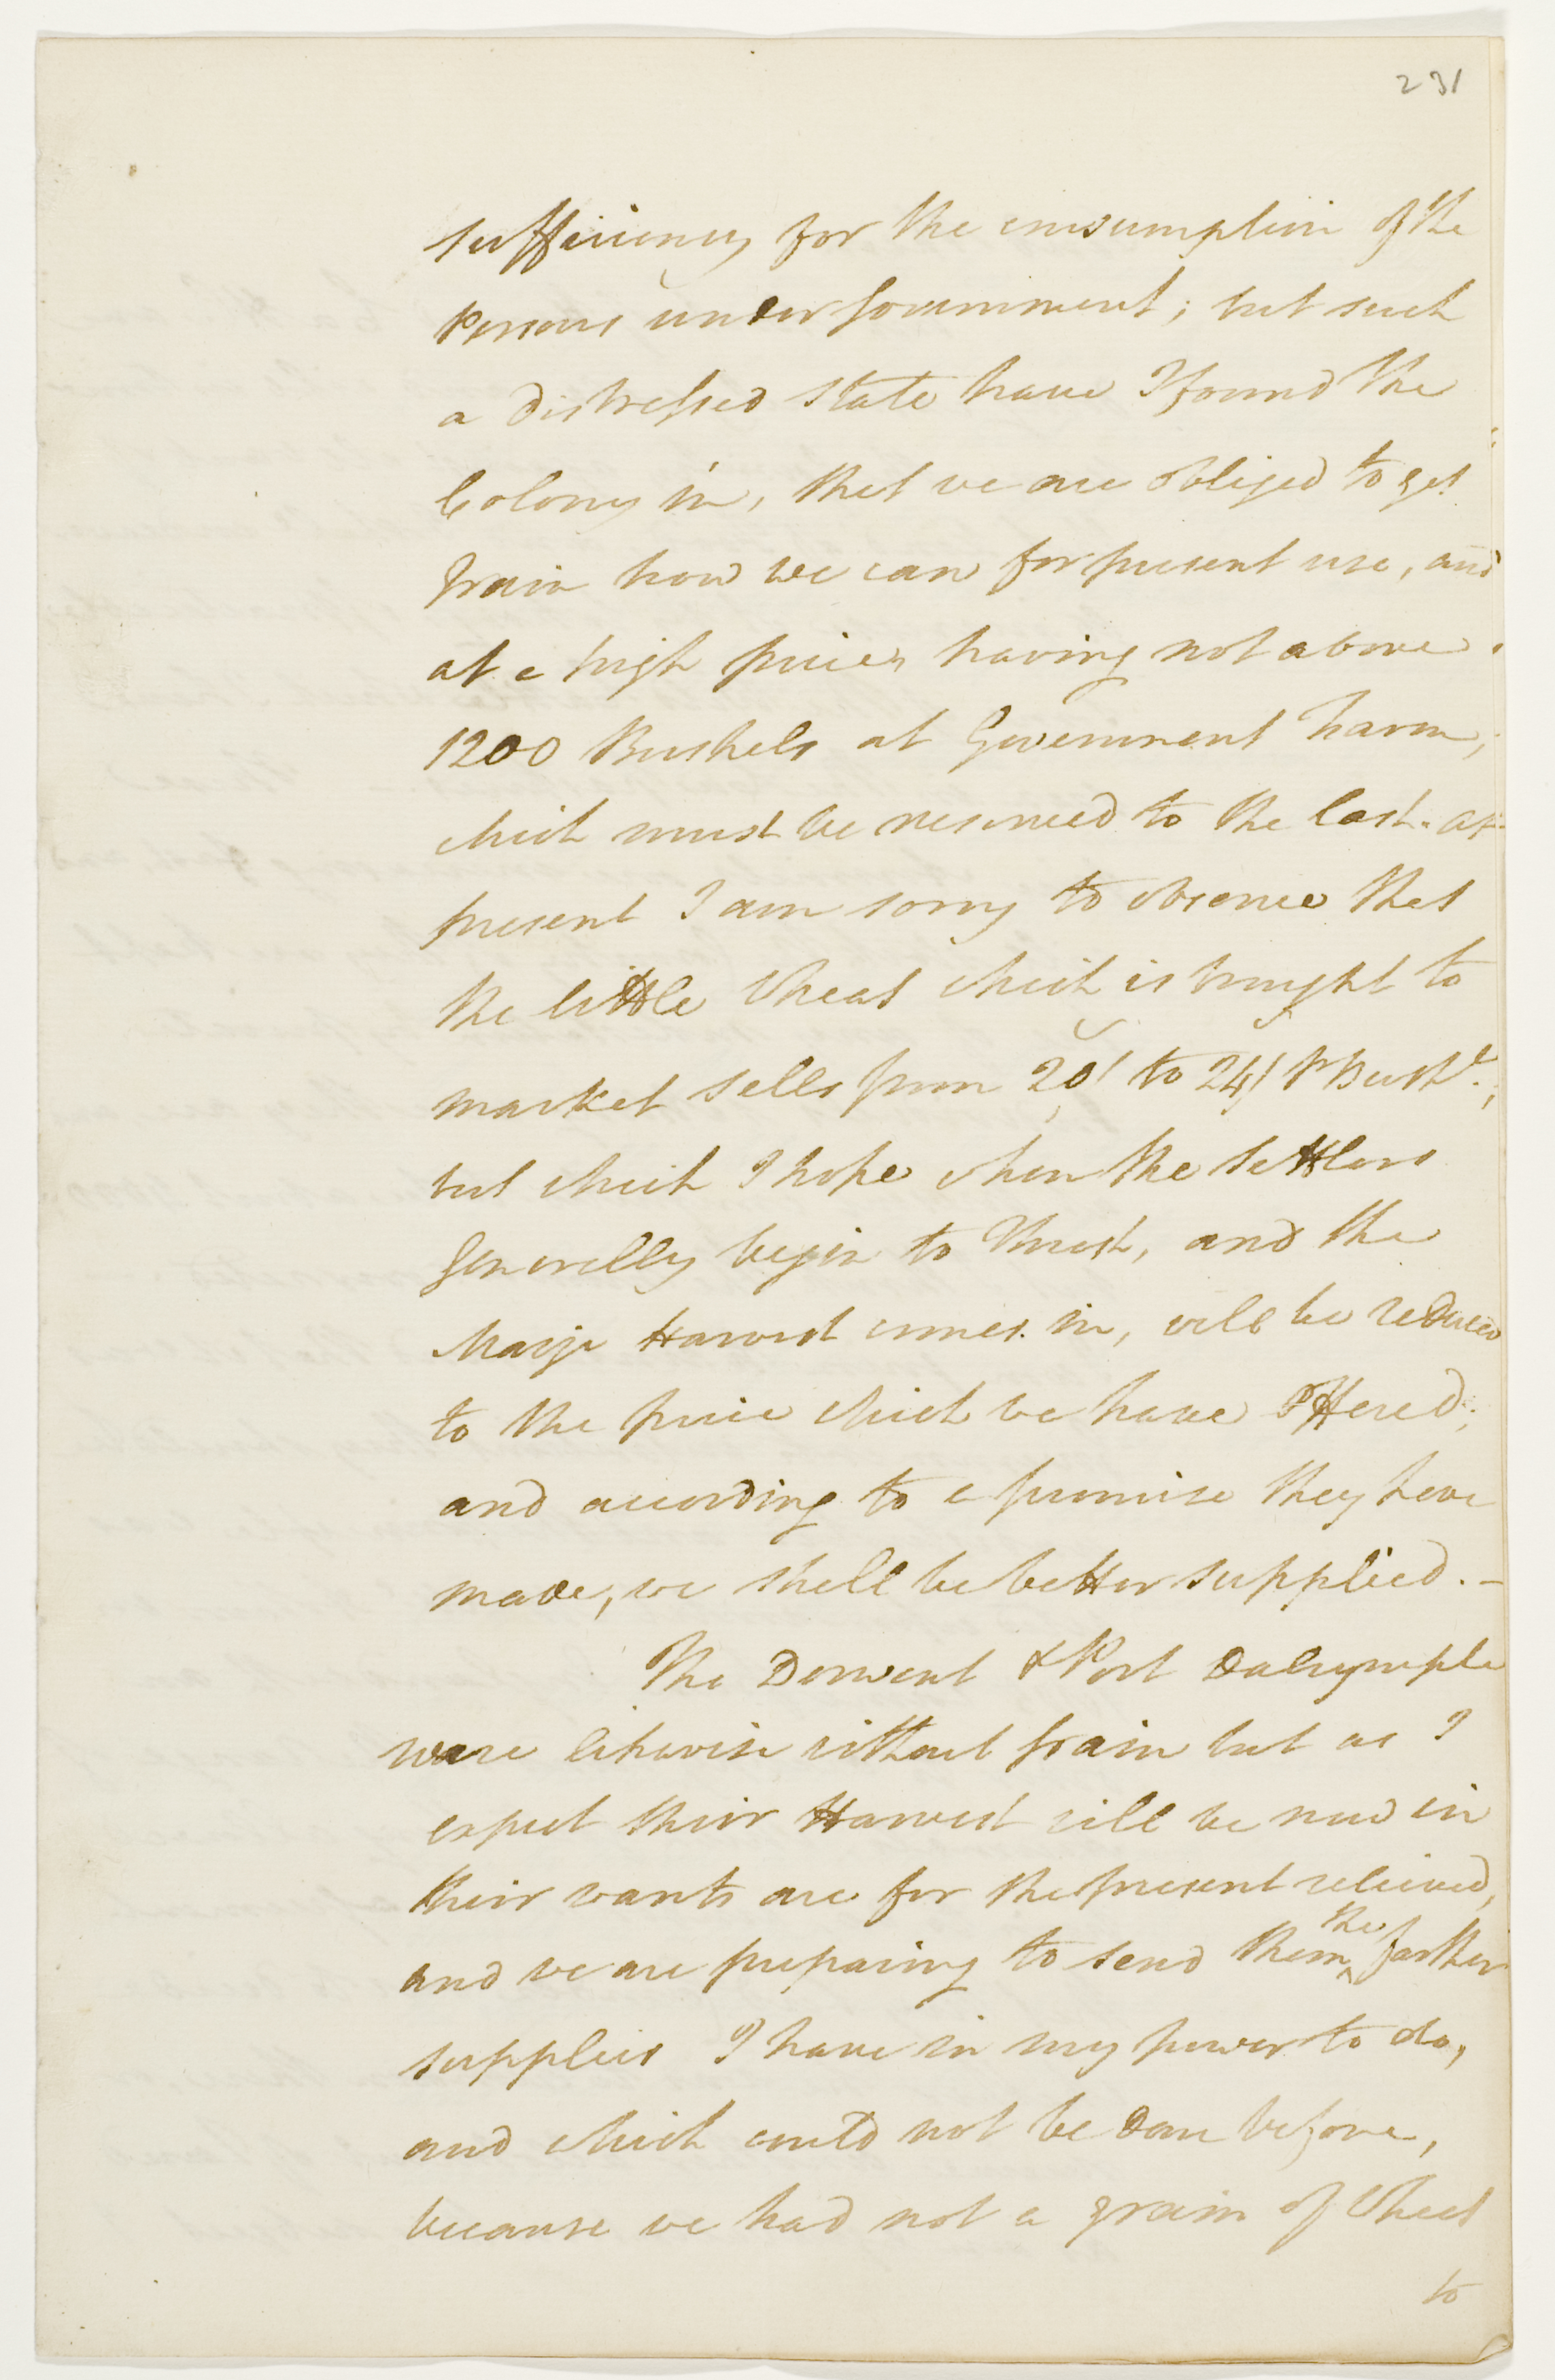 231
sufficiency for the consumption of the
Persons under Government; but such
a distressed state have I found the
Colony in, that we are obliged to get
Grain how we can for present use, and
at a high price, having not above
1200 Bushels at Government Farm,
which must be reserved to the last. at
present I am sorry to observe that
the little Wheat which is brought to
market sells from 20/ to 24/ Pr Bushl.;
but which I hope when the Settlers
Generally begin to thresh, and the
Maize Harvest comes in, will be reduced
to the price which we have Offered;
and according to a promise they have
made, we shall be better supplied. -
The Derwent & Port Dalrymple
were likewise without Grain but as I
expect their Harvest will be now in
their wants are for the present relieved,
and we are preparing to send them ^the farther
supplies I have in my power to do,
and which could not be Done before,
because we had not a grain of Wheat
to